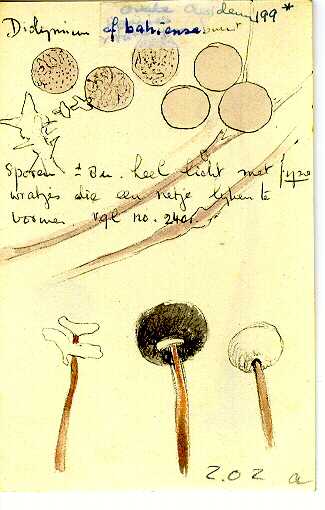 199*
Didymium cf bahiense
Sporen ± 8u. heel licht met fijne
wratjes die een netje lijken te
vormen vgl no. 2401.
202 a